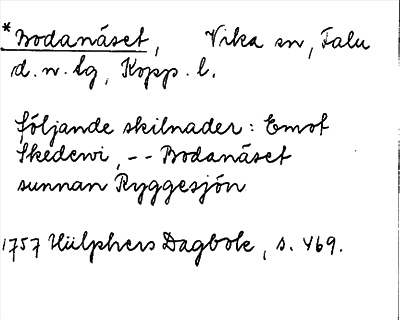 *Bodanäset, Vika sn, Falu
d.n. tg, Kopp. l.
följande skilnader: Emot
Skedewi, -- Bodanäset
sunnan Ryggesjön
1757 Hülphers Dagbok, s. 469.